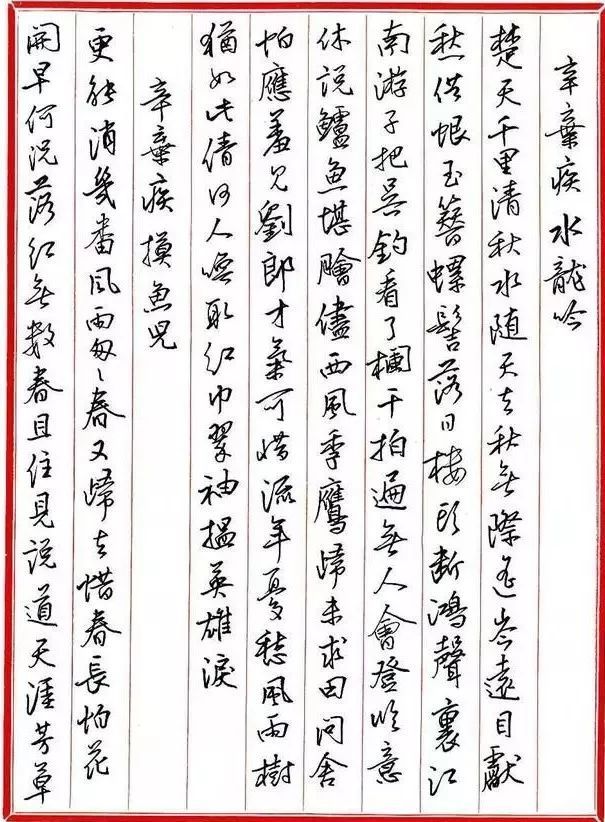 辛棄疾水龍吟
楚天千里清秋水随天去秋無際遙岑遠目獻
愁供恨玉簪螺髻落日樓頭斷鴻聲裏江
南游子把吴鉤看了欄干拍遍無人會登临意
休説鱸魚堪膾儘西風季鷹歸未求田問舍
怕應羞見劉郎才氣可惜流年憂愁風雨樹
猶如此倩何人喚取紅巾翠袖搵英雄淚
辛棄疾摸魚兒
更能消幾番風雨匆匆春又歸去惜春長怕花
開早何況落紅無數春且住見説道天涯芳草